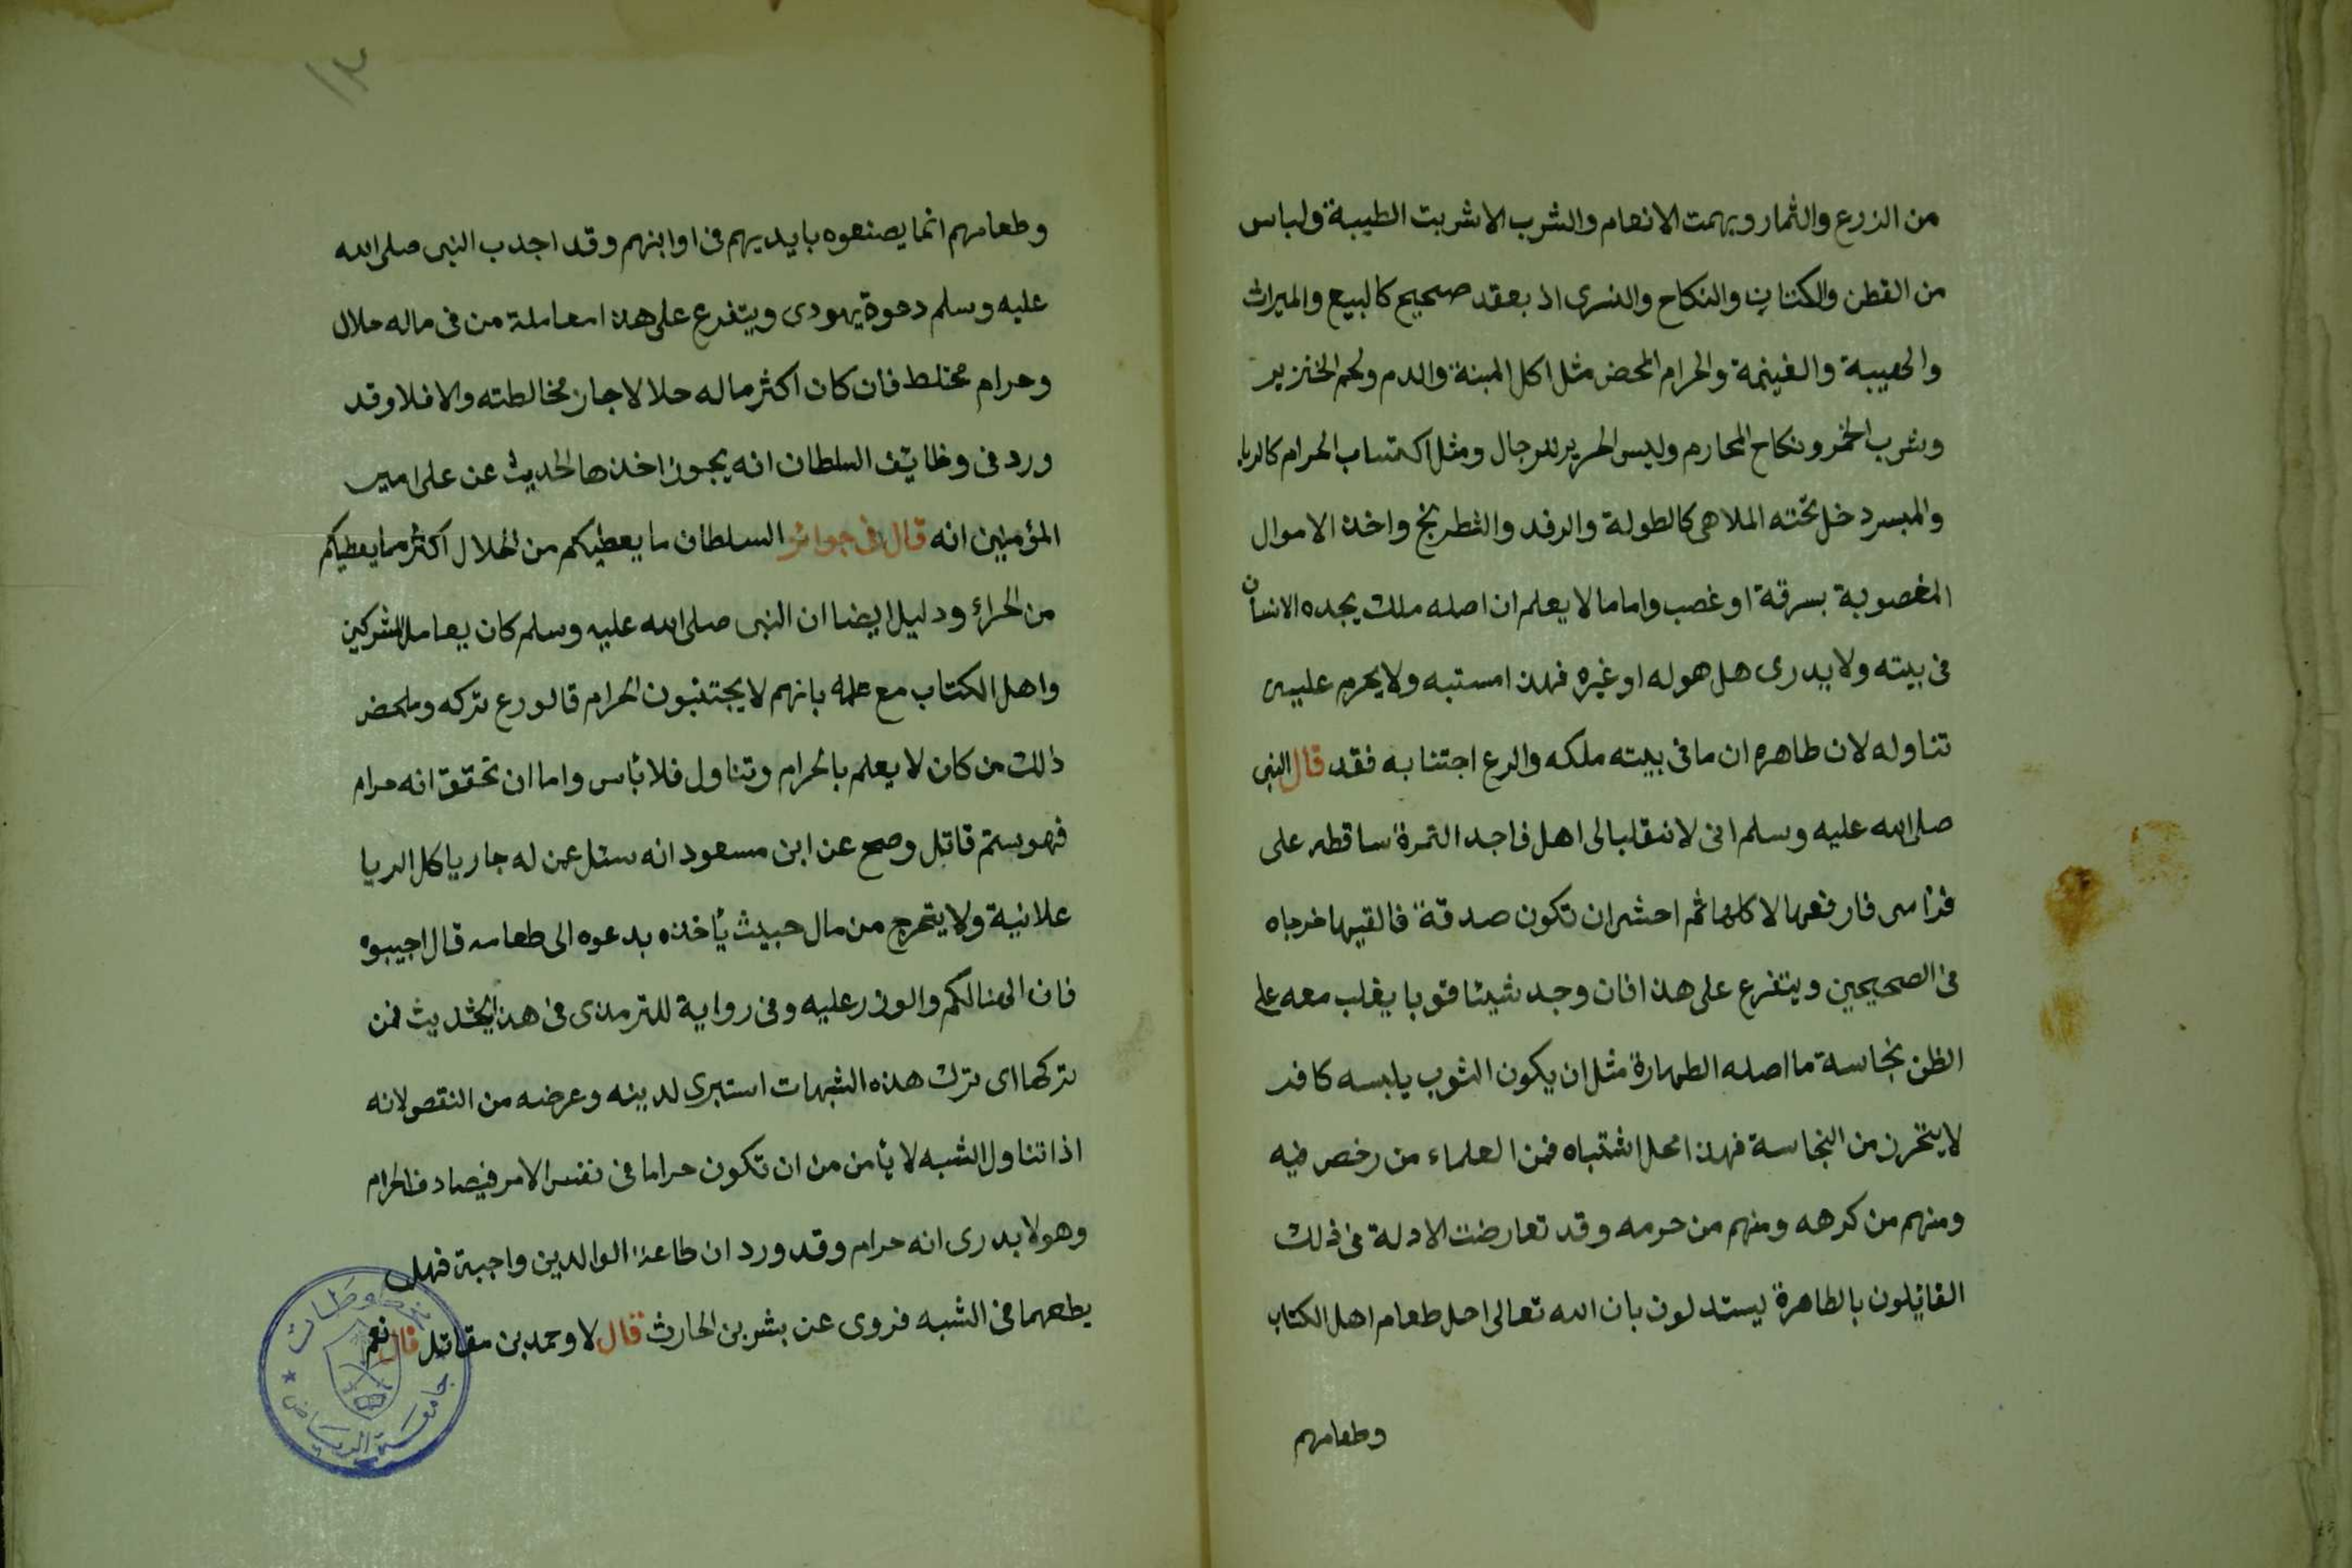 من الزرع والثمار وبهمت الانعام والشرب الاشربت الطيبة ولباس
من القطن والكتان والنكاح والنسرى اذ بعقد صحيح كالبيع والميراث
والهيبة والغينمة والحرام المحض مثل اكل الميتة والدم ولحم الخنزير
وشرب الخمر ونكاح المحارم وليس الحرير للرجال ومثل اكتساب الحرام كالربا
والميسر دخل تحته الملاهى كالطولة والرفد والشطرنج واخذ الاموال
المغصوبة بسرقة او غصب واما ما لا يعلم ان اصله ملك يجده الانسان
فى بيته ولا يدرى هل هو له او غيره فهذا مستبه ولا يحرم عليه
تناوله لان ظاهره ان ما فى بيته ملكه والرع اجتنا به فقد قال النبى
صلى الله عليه وسلم انى لانقلب الى اهل فاجد التمرة ساقطه على
فراسى فارفعها لاكلها ثم احشى ان تكون صدقة فالقيها خرجاه
فى الصحيحين ويتفرع على هذا فان وجد شيئا قوبا يغلب معه على
الظن نجاسة ما اصله الطهارة مثل ان يكون الثوب يلبسه كافر
لا يتحرز من النجاسة فهذا محل اشتباه فمن العلماء من رخص فيه
ومنهم من كرهه ومنهم من حرمه وقد تعارضت الادلة فى ذلك
القائلون بالطاهرة يستدلون بان الله تعالى احل طعام اهل الكتاب
وطعامهم
١٣
وطعامهم انما يصنعوه بايديهم فى اوانهم وقد اجدب النبى صلى الله
عليه وسلم دعوة يهودى ويتفرع على هذا معاملة من فى ماله حلال
وحرام مختلط فان كان اكثر ماله حلالا جاز مخالطته والا فلا وقد
ورد فى وظايف السلطان انه يجوز اخذها لحديث عن على امير
المؤمنين انه قال فى جوائز السلطان ما يعطيكم من الحلال اكثر مما يعطيكم
من الحرائ ودليل ايضا ان النبى صلى الله عليه وسلم كان يعامل المشركين
واهل الكتاب مع علمه بانهم لا يجتنبون الحرام قالورع تركه وملحض
ذالك من كان لا يعلم بالحرام وتناول فلا بأس واما ان تحقق انه حرام
فهو ستم قاتل وصح عن ابن مسعود انه سئل عمن له جار ياكل الربا
علانية ولا يتحرج من مال حبيث يأخذه بدعوه الى طعامه قال اجيبوه
فان الهنا لكم والوزر عليه وفى رواية للترمذى فى هذا الحديث فمن
تركها اى ترك هذه الشبهات استبرى لدينه وعرضه من النقص لانه
اذا تناول الشبه لا يأمن من ان تكون حراما فى نفس الامر فيصادف الحرام
وهو لا يدرى انه حرام وقد ورد ان طاعة الوالدين واجبة فهل
يطعهما فى الشبه فروى عن بشر بن الحارث قال لا وحمد بن مقاتل قال نعم
جامعة الرياض
مخطوطات